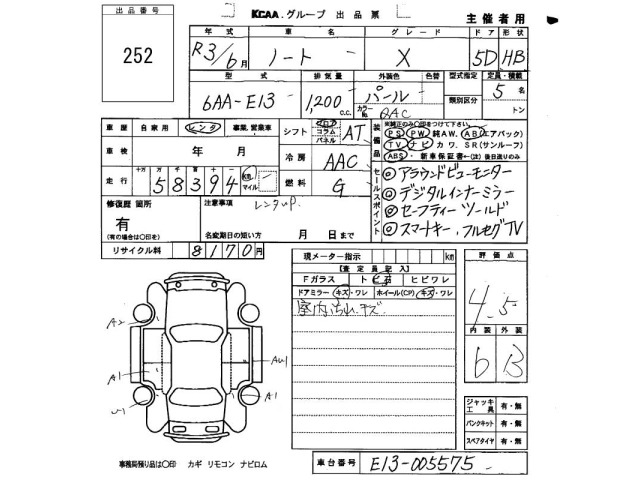 出品番号
252
KCAA.グループ 出品票
主催者用
年式 車名 グレード ドア 形状
R3/6月 ノート X 5D HB
型式 排気量 外装色 色替 型式指定 定員・積載
6AA-E13 1,200 c.c. パール カラーNo. QAC 類別区分 5名
トン
車歴 自家用 レンタ 事業、営業車
シフト フロア コラム パネル AT
装備品
※純正のみ○印をつけて下さい。
PS PW 純AW. AB (エアバック)
TV ナビ カワ. SR(サンルーフ)
ABS ・新車保証書←(注)後日送りのみ
車検 年 月
冷房 AAC
走行 十万 万 千 58394 km マイル
燃料 G
セールスポイント
◎アラウンドビューモニター
◎デジタルインナーミラー
◎セーフティーツールド
◎スマートキー、フルセグTV
修復歴 箇所
有
(有の場合は○印を)
注意事項
レンタup.
名変期日の短い方 月 日まで
リサイクル料 8170円
現メーター指示 km
【査定員記入】
Fガラス トビ石 ヒビワレ
ドアミラー(キズ・ワレ ホイール(CP)キズ・ワレ
室内汚れ.キズ
評価点
4.5
内装 外装
6 B
A2
A1
U1
AU1
A1
ジャッキ工具 有・無
パンクキット 有・無
スペアタイヤ 有・無
事務局預り品は○印 カギ リモコン ナビロム
車台番号 E13-005575